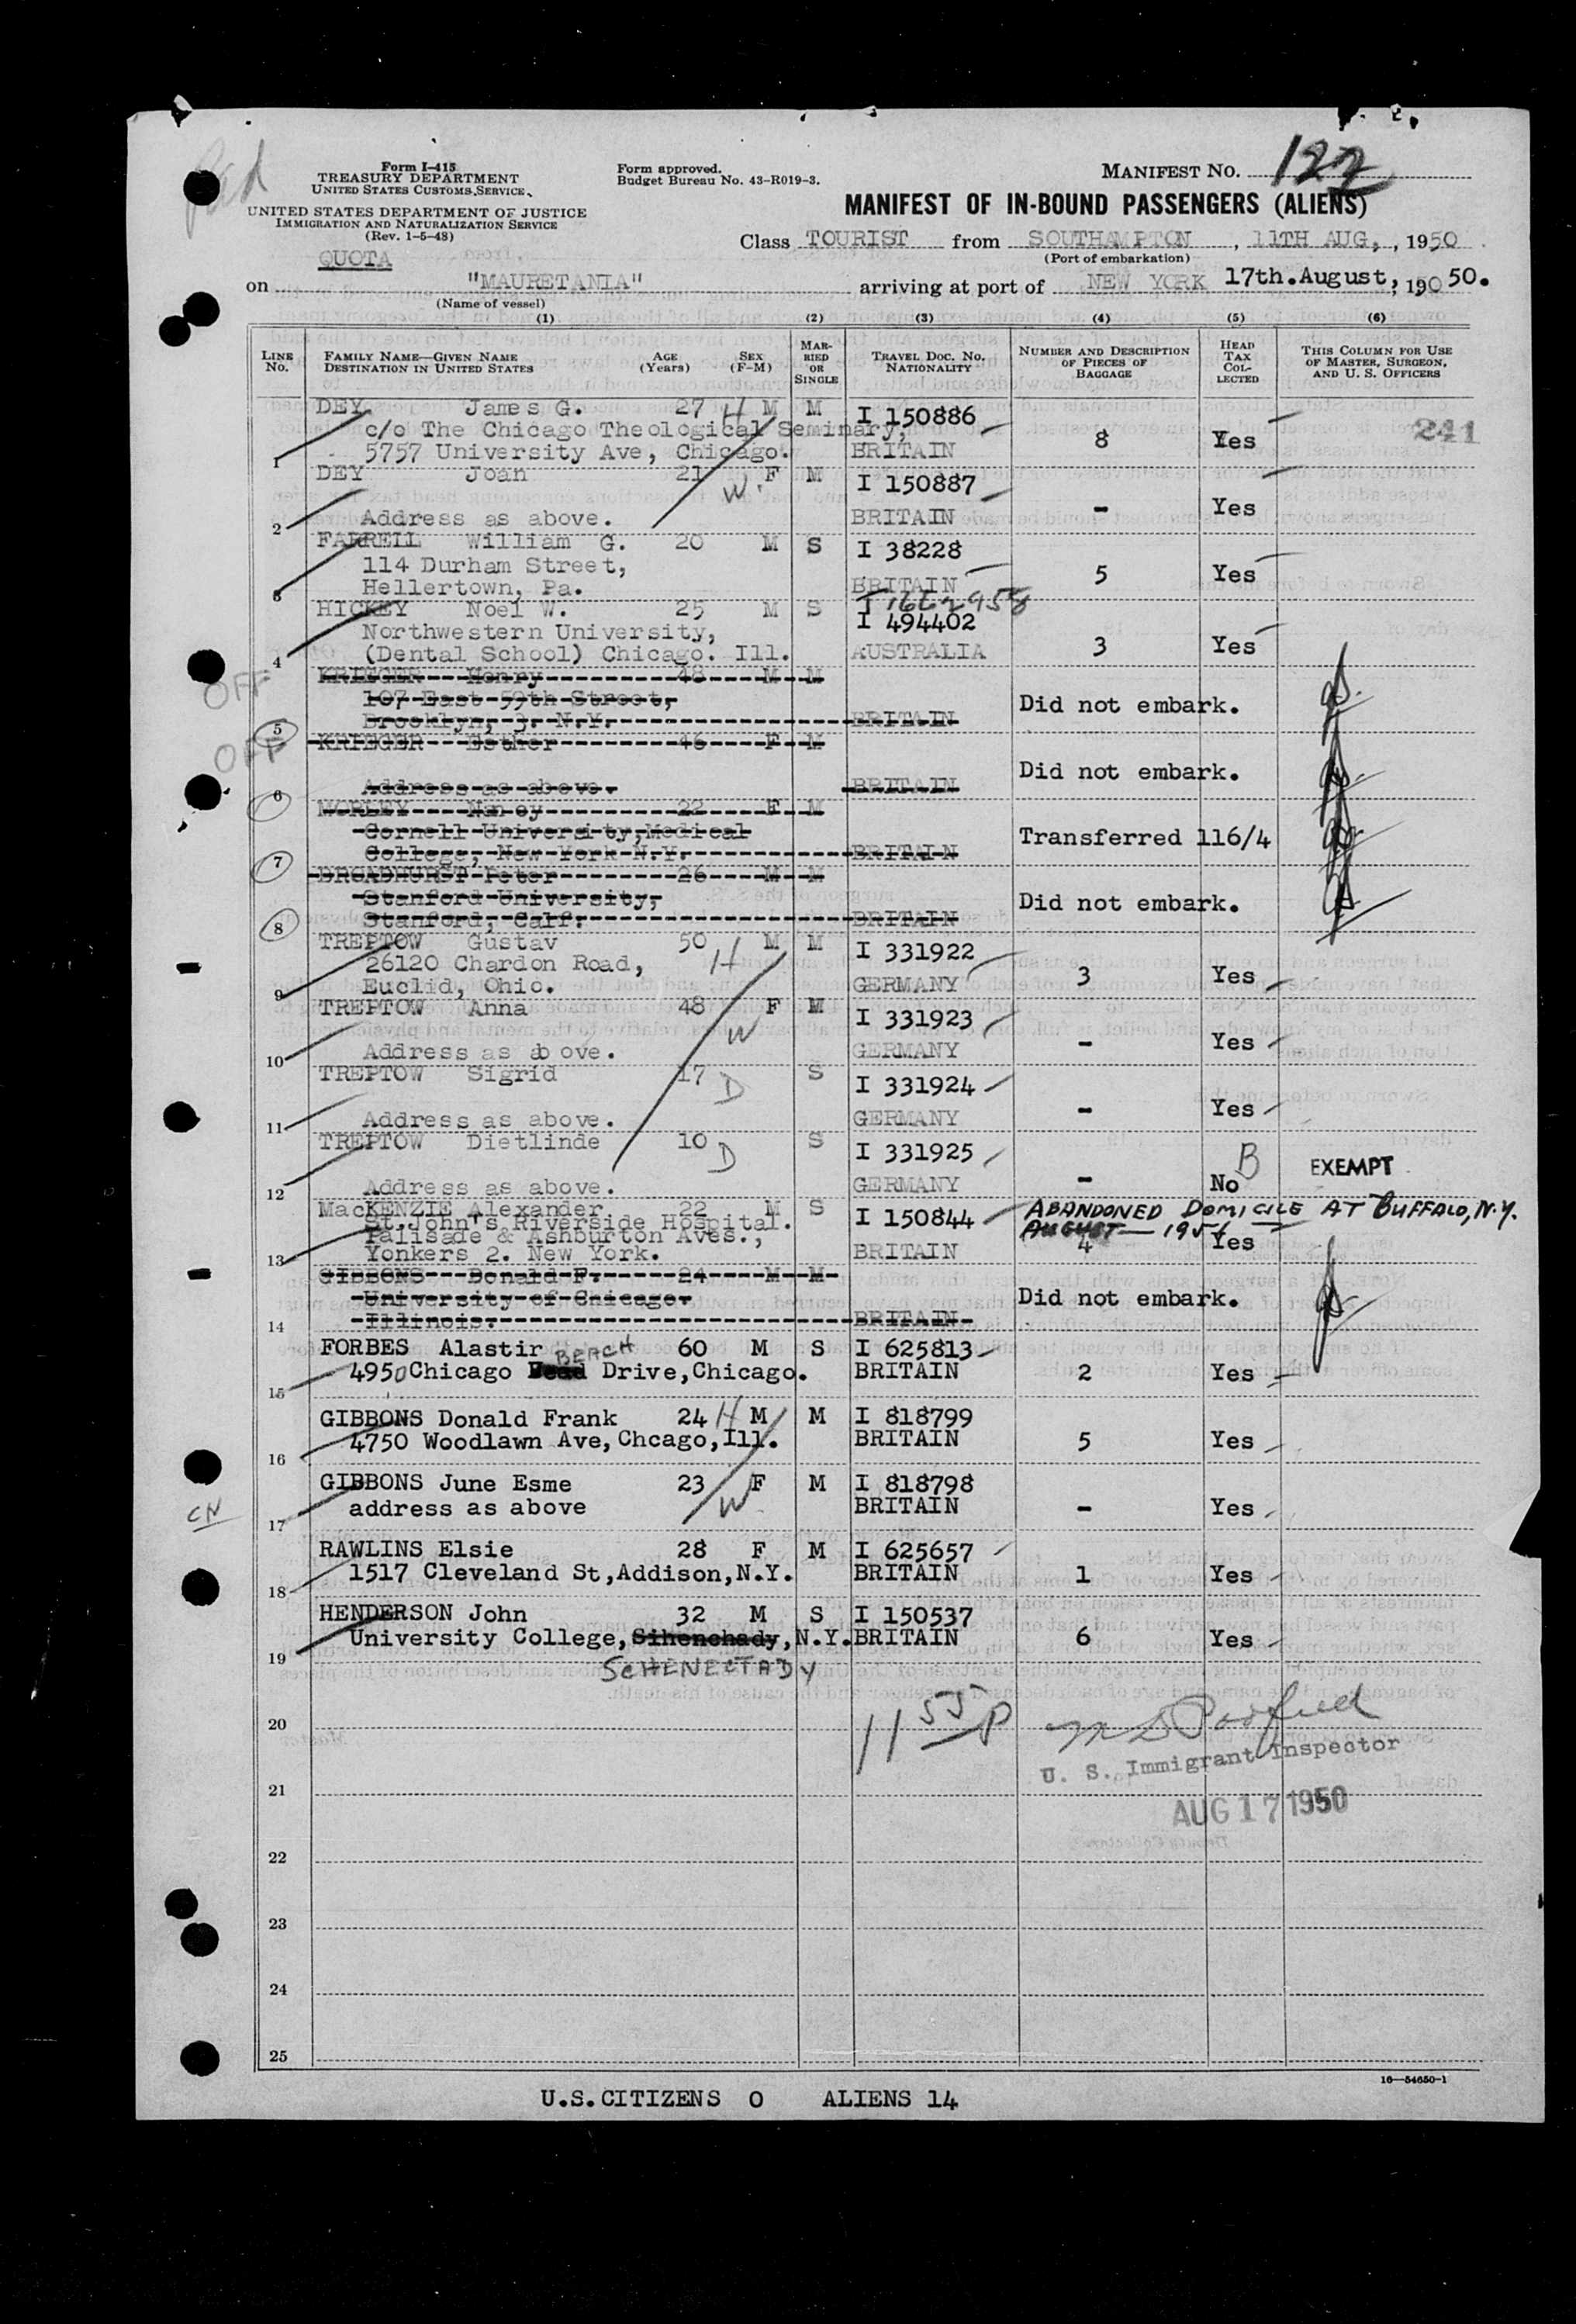 Form I-415
TREASURY DEPARTMENT
UNITED STATES CUSTOMS SERVICE
UNITED STATES DEPARTMENT OF JUSTICE
IMMIGRATION AND NATURALIZATION SERVICE
(Rev. 1-5-48)
Form approved.
Budget Bureau No. 43-R019-3.
MANIFEST NO. 122
MANIFEST OF IN-BOUND PASSENGERS (ALIENS)
Class TOURIST from SOUTHAMPTON, 11TH AUG, , 1950
(Port of embarkation)
QUOTA
on "MAURETANIA" arriving at port of NEW YORK 17th.August, 1950.
(Name of vessel)
(1) (2) (3) (4) (5) (6)
LINE NO. FAMILY NAME—GIVEN NAME DESTINATION IN UNITED STATES AGE (Years) SEX (F-M) MARRIED OR SINGLE TRAVEL DOC. NO. NATIONALITY NUMBER AND DESCRIPTION OF PIECES OF BAGGAGE HEAD TAX COLLECTED THIS COLUMN FOR USE OF MASTER, SURGEON, AND U. S. OFFICERS
DEY James G. 27 H M M I 150886
c/o The Chicago Theological Seminary, 8 Yes 241
1 5757 University Ave, Chicago. BRITAIN
DEY Joan 21 W. F M I 150887
- Yes
2 Address as above. BRITAIN
FARRELL William G. 20 M S I 38228
114 Durham Street, 5 Yes
3 Hellertown, Pa. BRITAIN
HICKEY Noel W. 25 M S I 494402
Northwestern University, 3 Yes
4 (Dental School) Chicago. Ill. AUSTRALIA
OFF
KRIEGER Henry 48 M M
107 East 59th Street, Did not embark.
5 Brooklyn, 3. N.Y. BRITAIN
OFF
KRIEGER Esther 46 F M
Did not embark.
6 Address as above. BRITAIN
MORLEY Nancy 22 F M
Cornell University, Medical Transferred 116/4
7 College, New York N.Y. BRITAIN
BROADHURST Peter 26 M M
Stanford University, Did not embark.
8 Stanford, Calf. BRITAIN
TREPTOW Gustav 50 H M M I 331922
26120 Chardon Road, 3 Yes
9 Euclid, Ohio. GERMANY
TREPTOW Anna 48 W F M I 331923
- Yes
10 Address as above. GERMANY
TREPTOW Sigrid 17 D S I 331924
- Yes
11 Address as above. GERMANY
TREPTOW Dietlinde 10 D S I 331925
- No B EXEMPT
12 Address as above. GERMANY
MacKENZIE Alexander 22 M S I 150844 ABANDONED DOMICILE AT BUFFALO, N.Y.
St.John's Riverside Hospital. AUGUST — 1951
Palisade & Ashburton Aves., 4 Yes
13 Yonkers 2. New York. BRITAIN
GIBBONS Donald F. 24 M M
University of Chicago. Did not embark.
14 Illinois. BRITAIN
FORBES Alastir 60 M S I 625813
BEACH
15 4950 Chicago Drive, Chicago. BRITAIN 2 Yes
GIBBONS Donald Frank 24 H M M I 818799
16 4750 Woodlawn Ave, Chcago, Ill. BRITAIN 5 Yes
GIBBONS June Esme 23 W F M I 818798
CN 17 address as above BRITAIN - Yes
RAWLINS Elsie 28 F M I 625657
18 1517 Cleveland St, Addison, N.Y. BRITAIN 1 Yes
HENDERSON John 32 M S I 150537
19 University College, Sihenchady, N.Y. BRITAIN 6 Yes
SCHENECTADY
20 11 55 P
U. S. Immigrant Inspector
21 AUG 17 1950
22
23
24
25
16—54650-1
U.S.CITIZENS 0 ALIENS 14